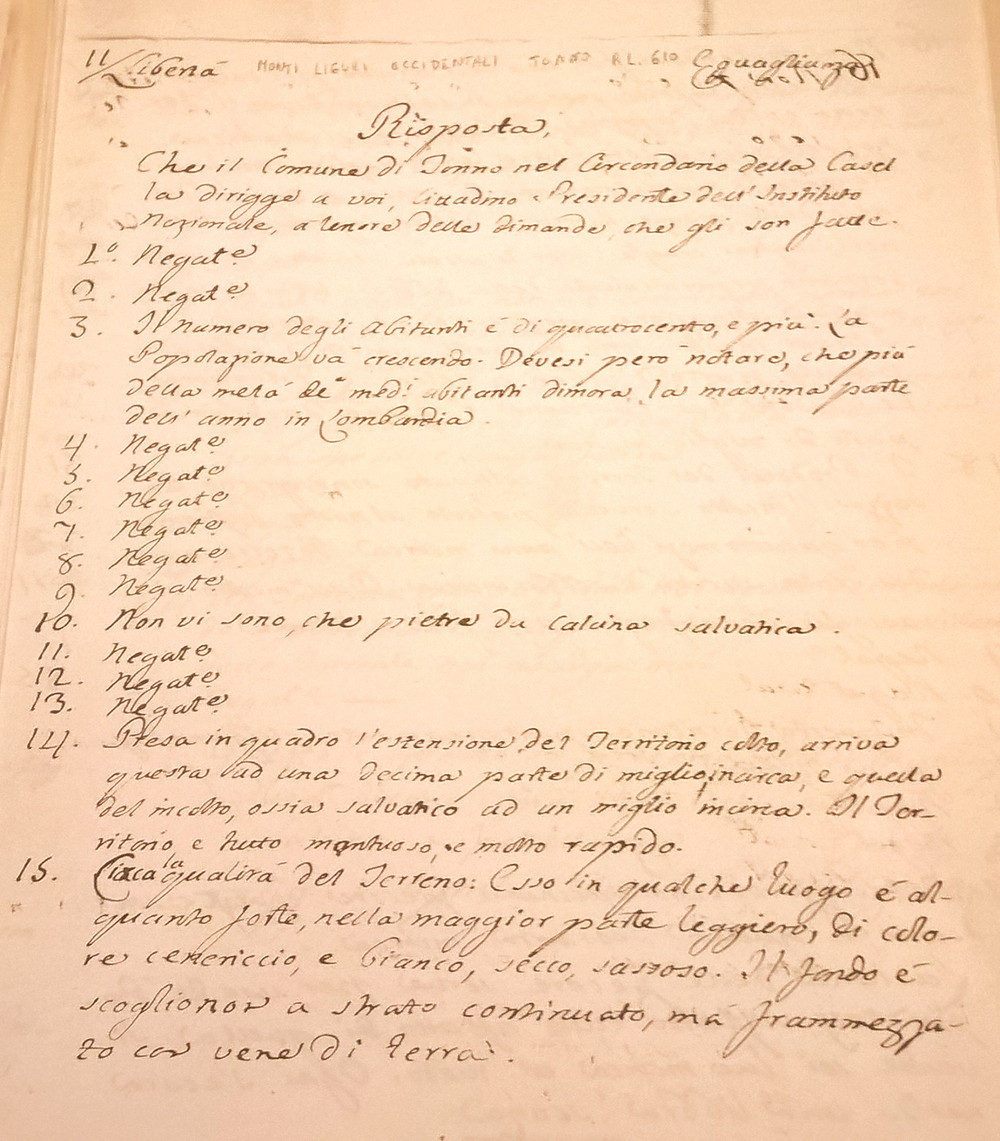 11/ Libertà MONTI LIGURI OCCIDENTALI TONNO R.L. 610 Eguaglianza
Risposta,
Che il Comune di Tonno nel Circondario della Casel
la dirigge a voi, Cittadino Presidente dell' Instituto
Nazionale, a tenore delle dimande che gli son fatte.
1º. Negatᵉ
2. Negatᵉ
3. Il numero degli Abitanti é di quattrocento, e più. La
Popolazione vá crescendo. Devesi peró notare, che piú
della metá de' medⁱ abitanti dimora la massima parte
dell' anno in Lombardia.
4. Negatᵉ
5. Negatᵉ
6. Negatᵉ
7. Negatᵉ
8. Negatᵉ
9. Negatᵉ
10. Non vi sono, che pietre da Calcina salvatica.
11. Negatᵉ
12. Negatᵉ
13. Negatᵉ
14. Presa in quadro l'estensione del Territorio colto, arriva
questa ad una decima parte di miglio incirca, e quella
del incolto, ossia salvatico ad un miglio incirca. Il Ter-
ritorio e tutto montuoso, e molto rapido.
15. Circa la qualitá del Terreno: Esso in qualche luogo é al-
quanto forte, nella maggior parte leggiero, di colo-
re cenericcio, e bianco, secco, sassoso. Il fondo é
scoglio non a strato continuato, má frammezza-
to con vene di terra.